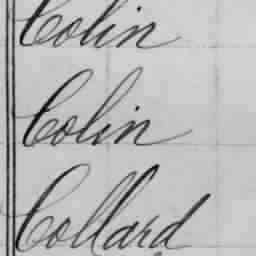 Colin
Colin
Collard